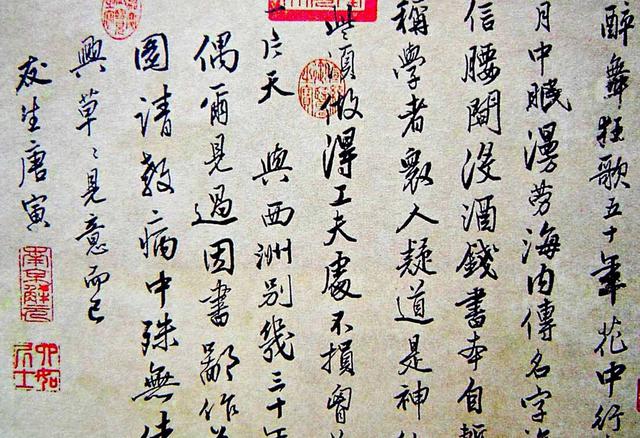 醉舞狂歌五十年花中行
月中眠漫勞海内傳名字
信腰間没酒錢書本自
稱學者衆人疑道是神
些須做得工夫處不損胸
片天 與西洲別幾三十年
偶爾見過因書鄙作
圖請教病中殊無
興草〻見意而已
友生唐寅
南京解元
六如居士